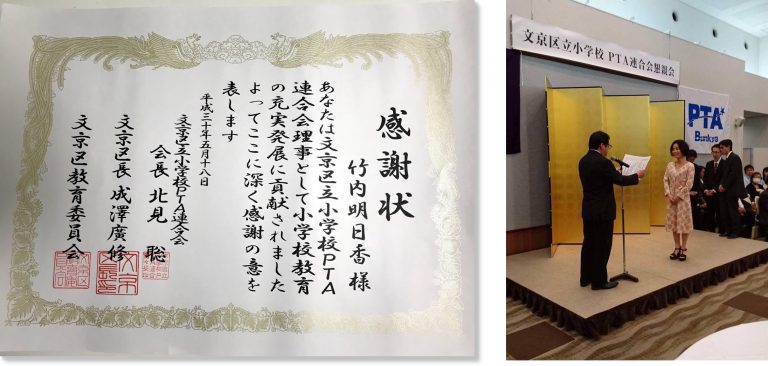 感謝状
竹内明日香様
あなたは文京区立小学校PTA
連合会理事として小学校教育
の充実発展に貢献されました
よってここに深く感謝の意を
表します
平成三十年五月十八日
文京区立小学校PTA連合会
会長 北見 聡
文京区長 成澤廣修
文京区教育委員会
文京区立小学校 PTA連合会懇親会
PTA
Bunkyo